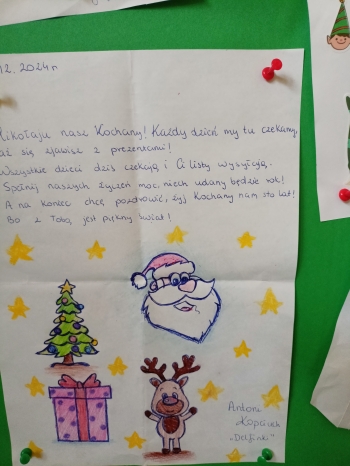 12.2024r
Mikołaju nasz Kochany! Każdy dzień my tu czekamy,
aż się zjawisz z prezencami!
Wszystkie dzieci dziś czekają i Ci listy wysyłają.
Spełnij naszych życzeń moc, niech udany będzie rok!
A na koniec chcę pozdrowić, żyj Kochany nam sto lat!
Bo z Tobą jest piękny świat!
Antoni
"Delfinki"